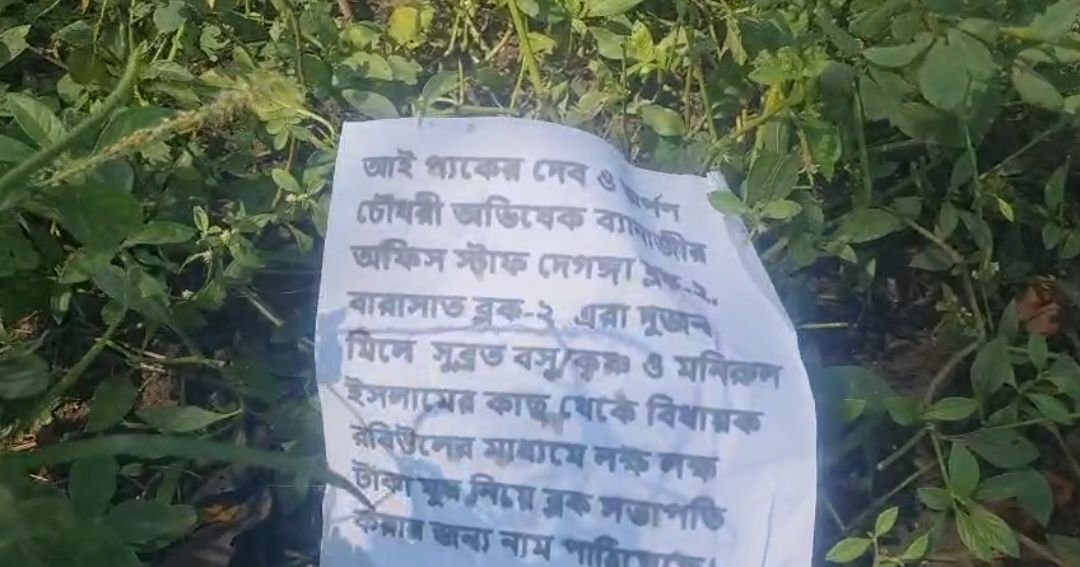 আই প্যাকের দেব ও অর্পন
চৌধরী অভিষেক ব্যানার্জীর
অফিস স্টাফ দেগঙ্গা ব্লক-২,
বারাসাত ব্লক-২ এরা দুজন
মিলে সুব্রত বসু/কৃষ্ণ ও মনিরুল
ইসলামের কাছ থেকে বিধায়ক
রবিউলের মাধ্যমে লক্ষ লক্ষ
টাকা ঘুষ নিয়ে ব্লক সভাপতি
করার জন্য নাম পাঠিয়েছে।